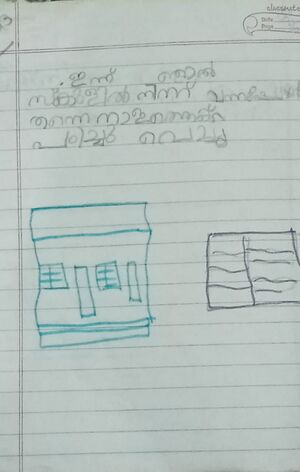 classmate
Date
Page
ഇന്ന് ഞാൻ
സ്കൂളിൽ നിന്ന് വന്നപ്പോൾ
തന്നെ നാളത്തേക്ക്
പഠിച്ചു വെച്ചു